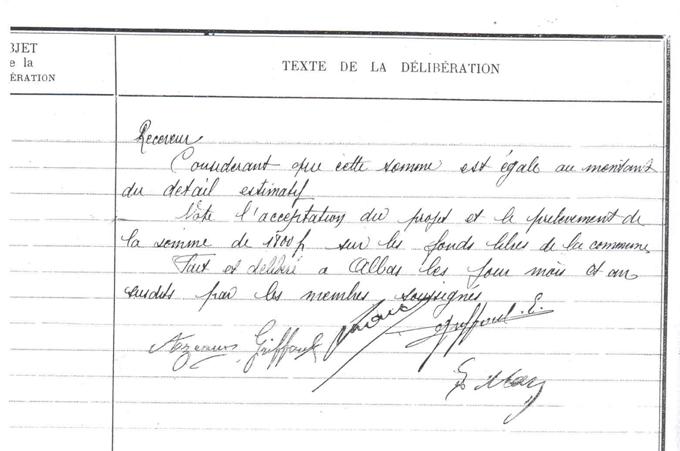 BJET
e la
BÉRATION
TEXTE DE LA DÉLIBÉRATION
Receveur
Considerant que cette somme est égale au montant
du détail estimatif
Vote l'acceptation du projet et le prelevement de
la somme de 1800f sur les fonds libres de la commune
Fait et délibéré a Albas les jour mois et an
susdits par les membres soussignés
Griffoul
Griffoul. E.